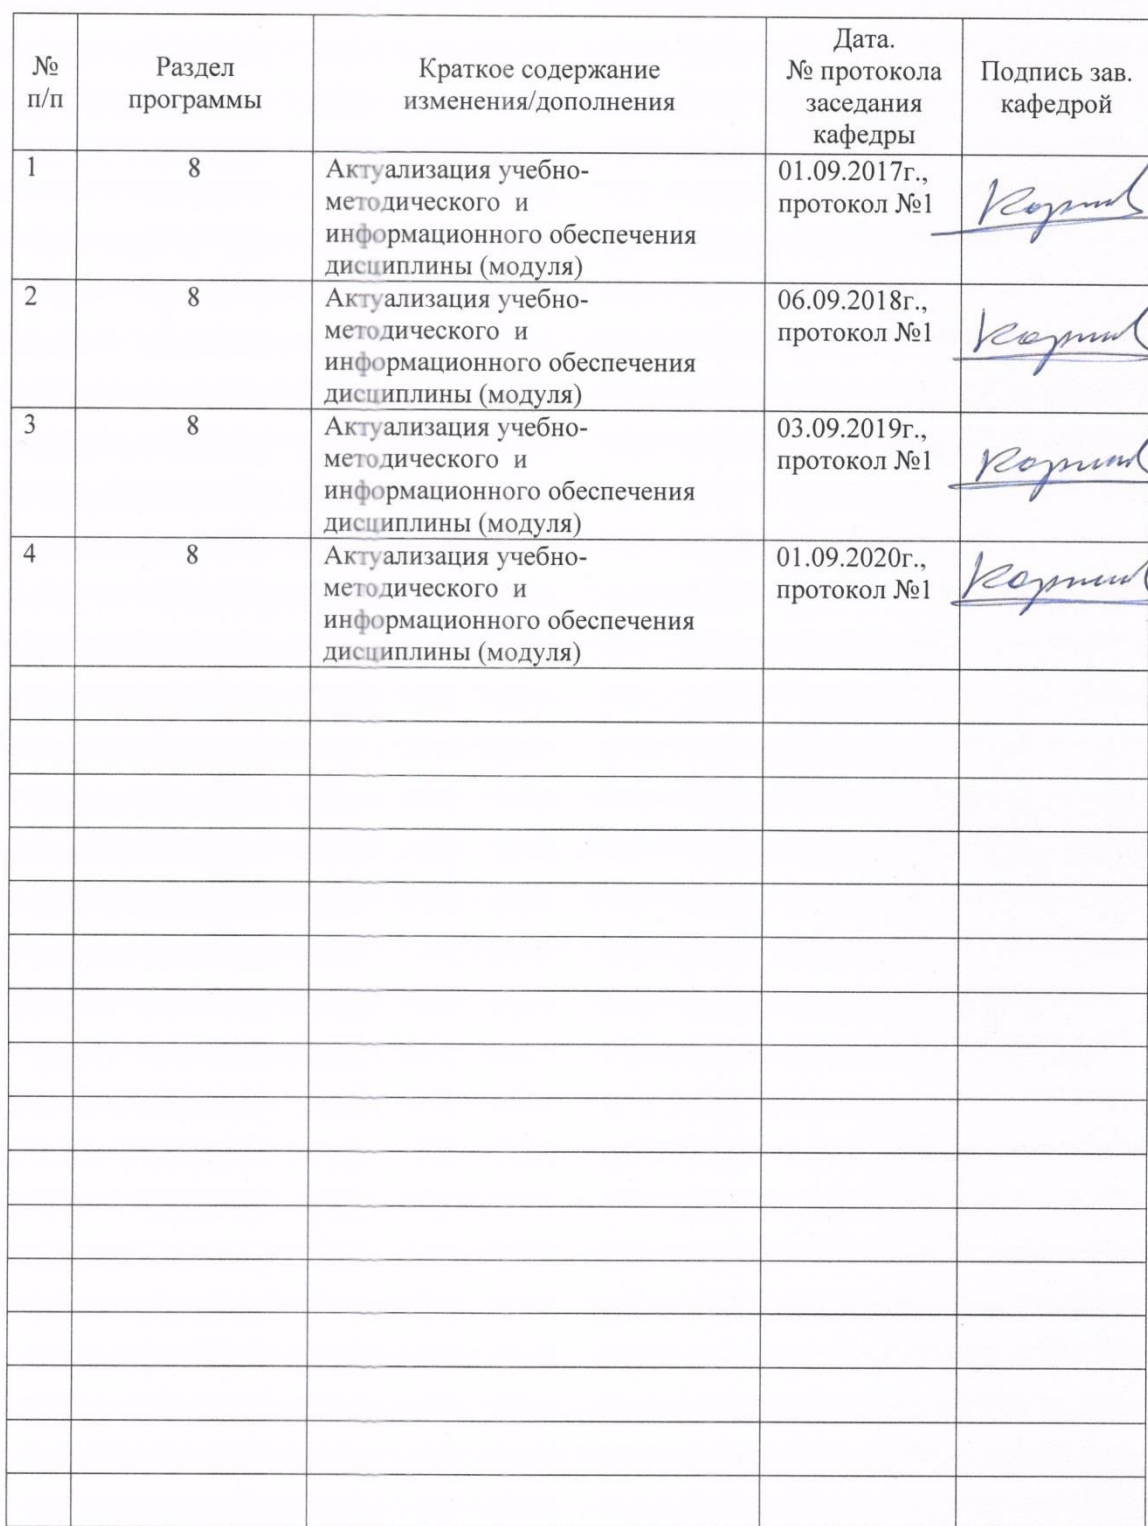 №
п/п
Раздел
программы
Краткое содержание
изменения/дополнения
Дата.
№ протокола
заседания
кафедры
Подпись зав.
кафедрой
1
8
Актуализация учебно-
методического и
информационного обеспечения
дисциплины (модуля)
01.09.2017г.,
протокол №1
2
8
Актуализация учебно-
методического и
информационного обеспечения
дисциплины (модуля)
06.09.2018г.,
протокол №1
3
8
Актуализация учебно-
методического и
информационного обеспечения
дисциплины (модуля)
03.09.2019г.,
протокол №1
4
8
Актуализация учебно-
методического и
информационного обеспечения
дисциплины (модуля)
01.09.2020г.,
протокол №1